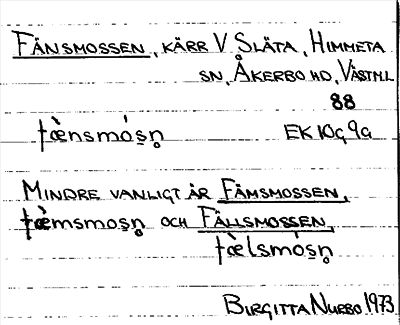 FÄNSMOSSEN, KÄRR V SLÄTA, HIMMETA
SN, ÅKERBO HD, VÄSTML
88
fæ̀nsmós̥n̥ EK 10G9a
MINDRE VANLIGT ÄR FÄMSMOSSEN,
fæ̀msmos̥n̥ OCH FÄLLSMOSSEN,
fæ̀lsmós̥n̥
BIRGITTA NURBO 1973